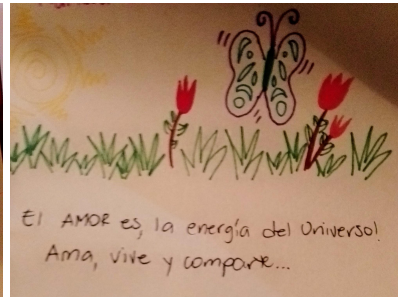 El AMOR es, la energía del Universo!
Ama, vive y comparte...